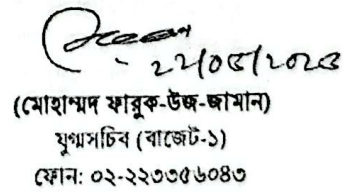 ২২/০৫/২০২৩
(মোহাম্মদ ফারুক-উজ-জামান)
যুগ্মসচিব (বাজেট-১)
ফোন: ০২-২২৩৩৫৬০৪৩